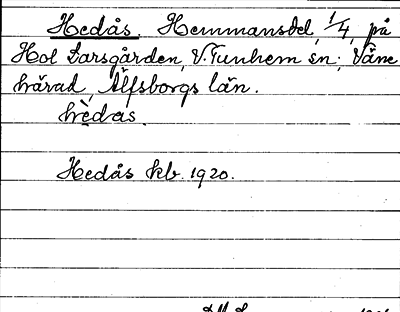 Hedås. Hemmansdel, 1/4, på
Hol Larsgården, V. Tunhem sn; Väne
härad, Älfsborgs län.
hèdas.
Hedås kb. 1920.